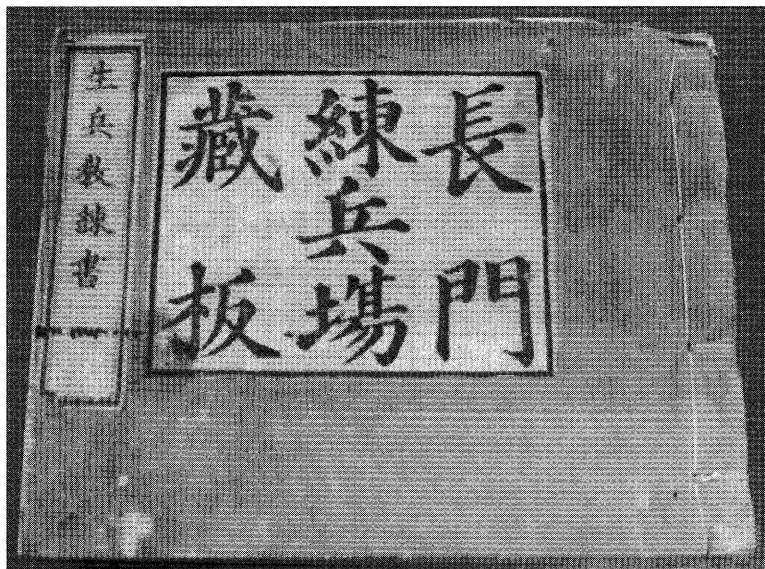 長門
練兵場
藏板
生兵教練書